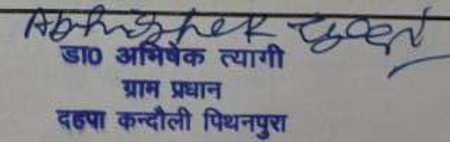 Abhishek
डा0 अभिषेक त्यागी
ग्राम प्रधान
दहपा कन्दौली पिथनपुरा